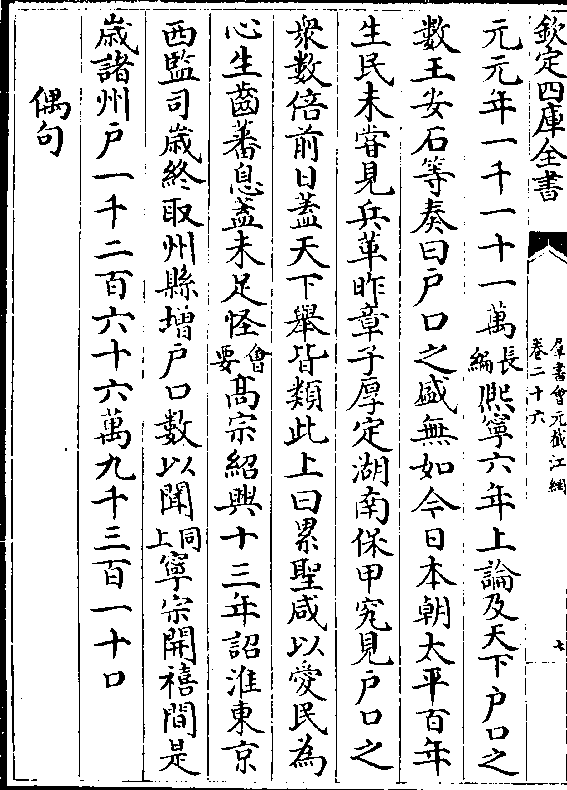 欽定四庫全書
羣書會元截江網
卷二十六
七
元元年一千一十一萬長編熙寧六年上論及天下户口之
數王安石等奏曰户口之盛無如今日本朝太平百年
生民未嘗見兵革昨章子厚定湖南保甲究見户口之
衆數倍前日蓋天下舉皆類此上曰累聖咸以愛民為
心生齒蕃息蓋未足怪會要高宗紹興十三年詔淮東京
西監司歳終取州縣增户口數以聞同上寧宗開禧間是
歳諸州户一千二百六十六萬九千三百一十口
偶句